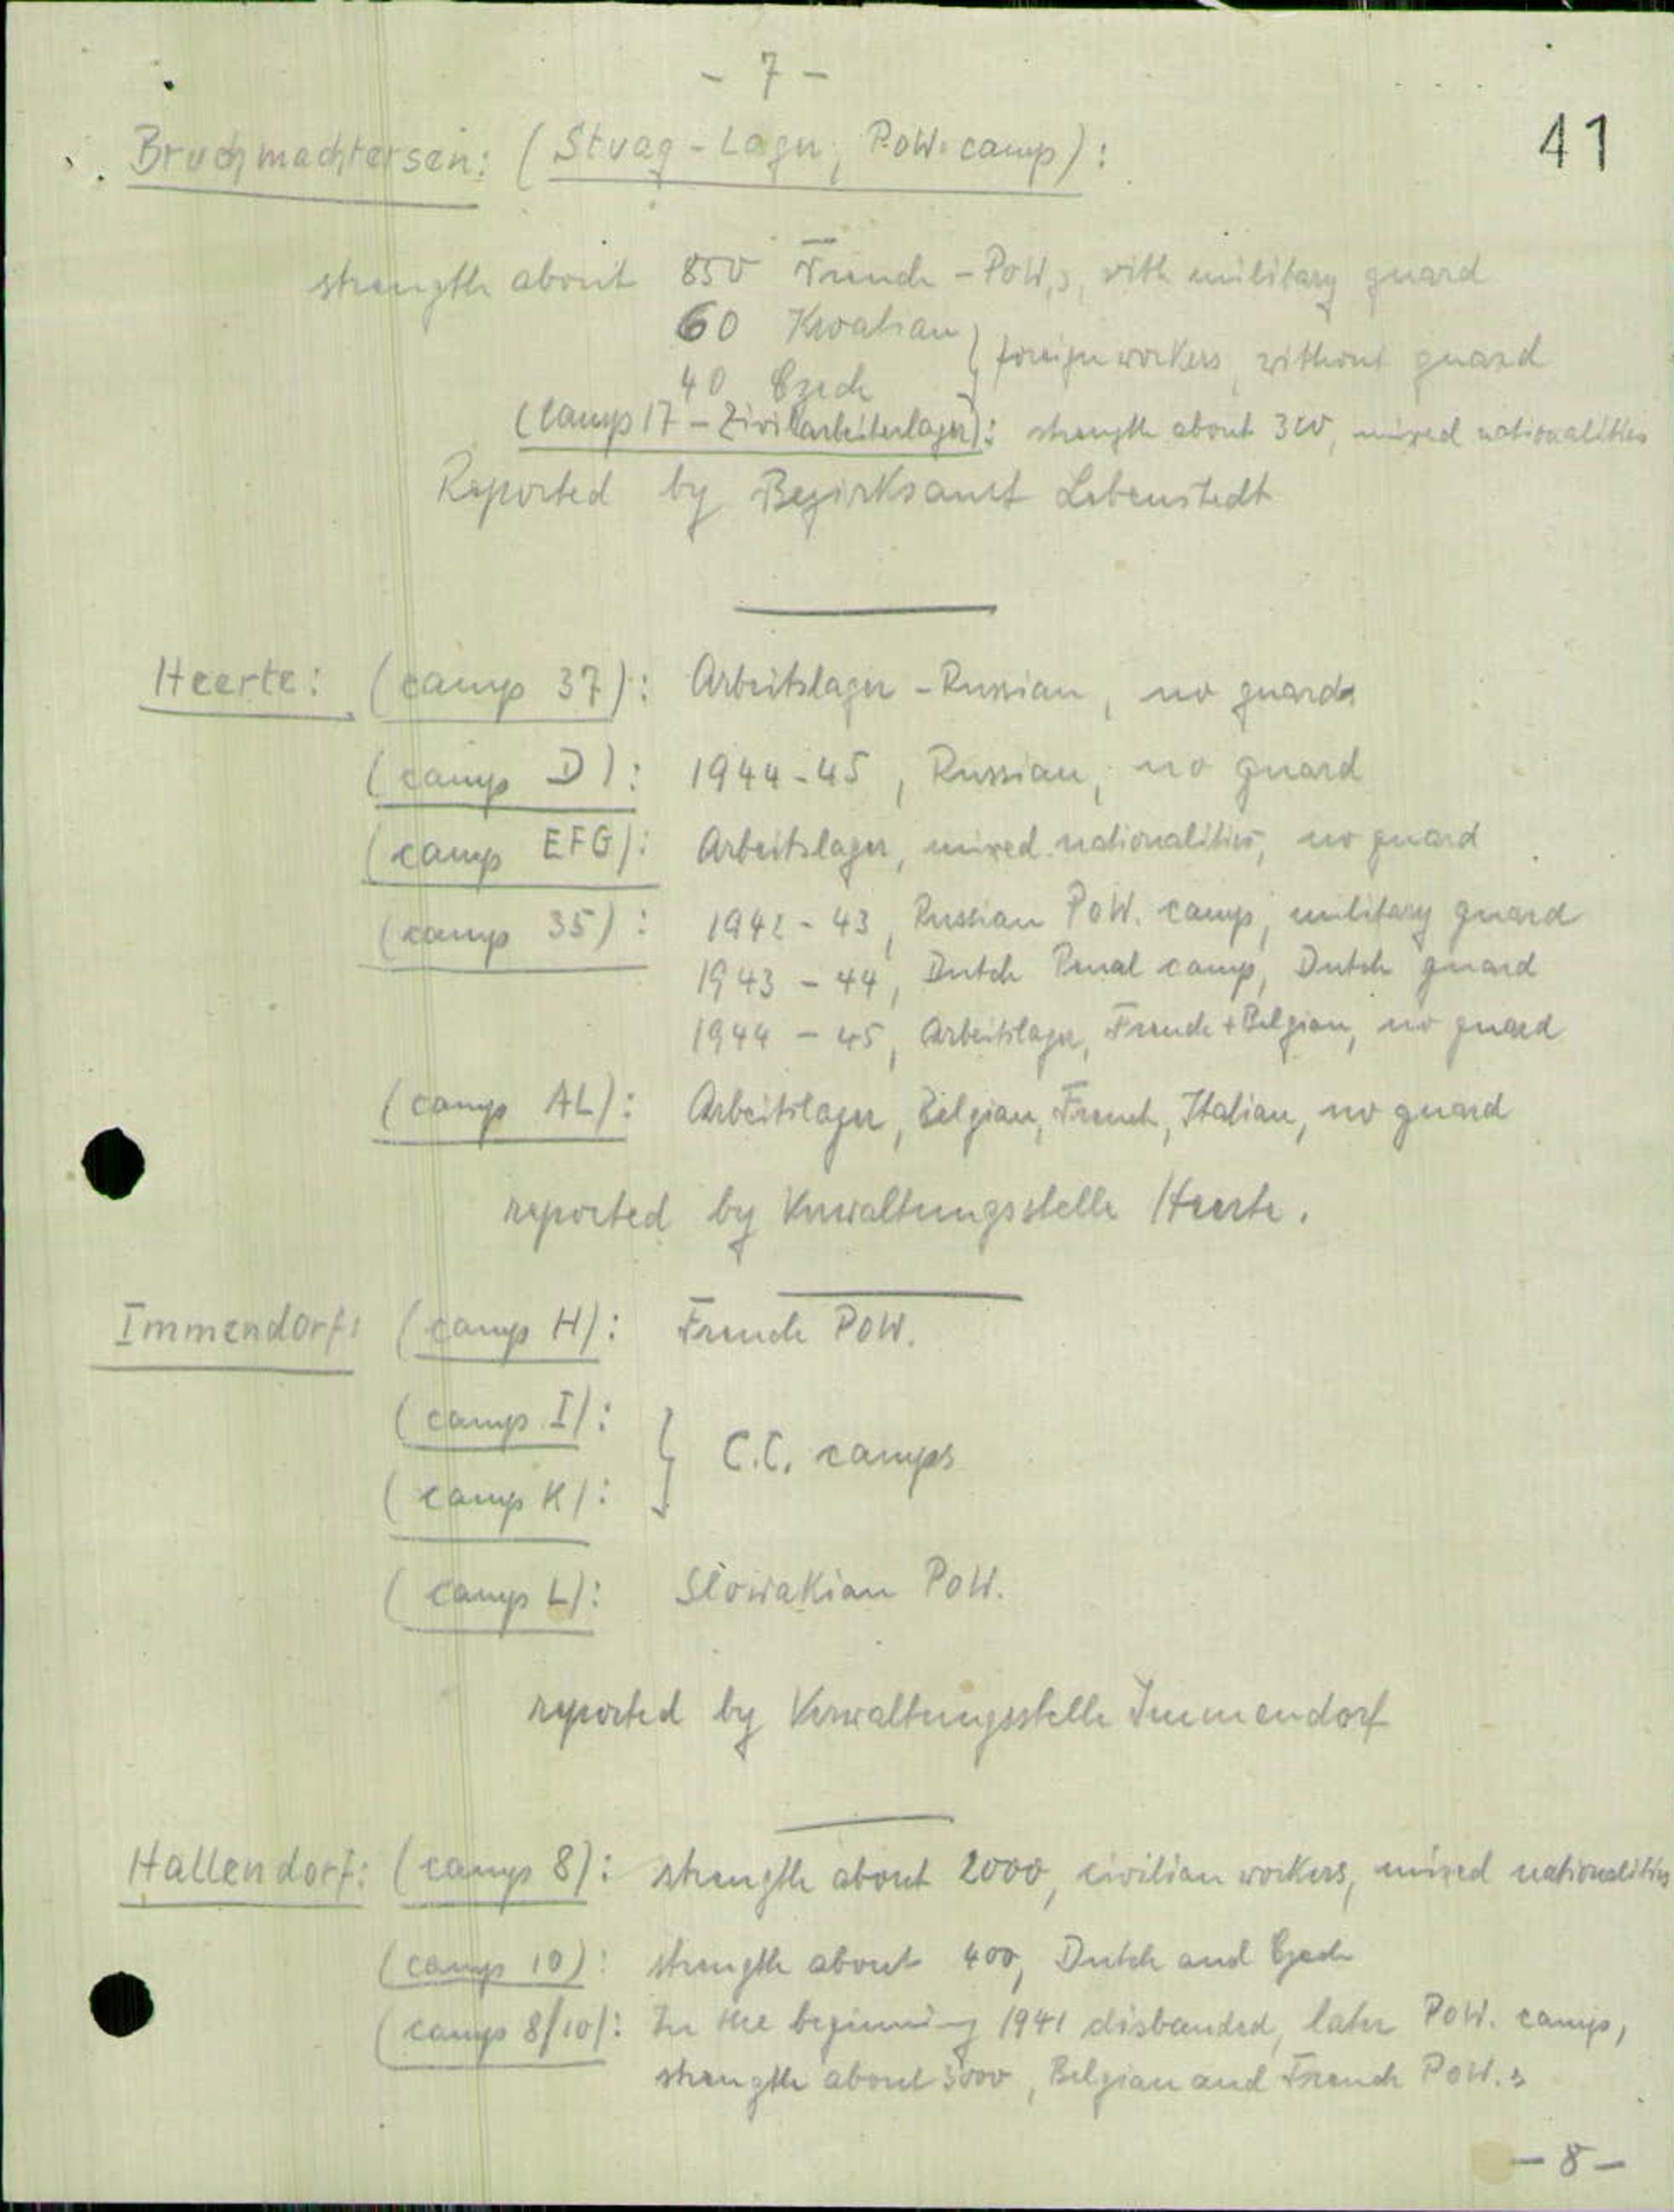 - 7 -
41
Bruchmachtersen: (Stuag-Lager, PoW.camp):
strength about 850 French - PoW,s, with military guard
60 Kroatian
40 Czech } foreign workers, without guard
(Camp 17 - Zivilarbeiterlager): strength about 300, mixed nationalities
Reported by Bezirksamt Lebenstedt
Heerte: (camp 37): Arbeitslager - Russian, no guards
(camp D): 1944-45, Russian, no guard
(camp EFG): Arbeitslager, mixed nationalities, no guard
(camp 35): 1942 - 43, Russian PoW. camp, military guard
1943 - 44, Dutch Penal camp, Dutch guard
1944 - 45, Arbeitslager, French + Belgian, no guard
(camp AL): Arbeitslager, Belgian, French, Italian, no guard
reported by Verwaltungsstelle Heerte.
Immendorf: (camp H): French PoW.
(camp I):
} C.C. camps
(camp K):
(camp L): Slowakian PoW.
reported by Verwaltungsstelle Immendorf
Hallendorf: (camp 8): strength about 2000, civilian workers, mixed nationalities
(camp 10): strength about 400, Dutch and Czech
(camp 8/10): In the beginning 1941 disbanded, later PoW. camp,
strength about 3000, Belgian and French PoW.s
- 8 -